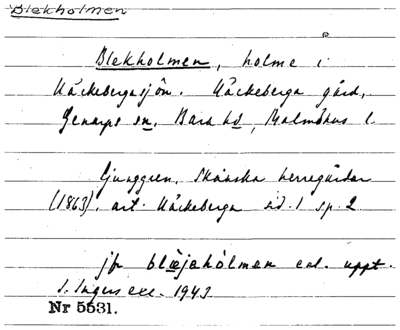 Blekholmen
Blekholmen, holme i
Häckebergasjön. Häckeberga gård,
Genarps sn, Bara hd, Malmöhus l.
Ljunggren, Skånska herregårdar
(1863), art. Häckeberga sid. 1 sp. 2
jfr blæjahólmen enl. uppt.
S. Ingers exc. 1943
Nr 5531.